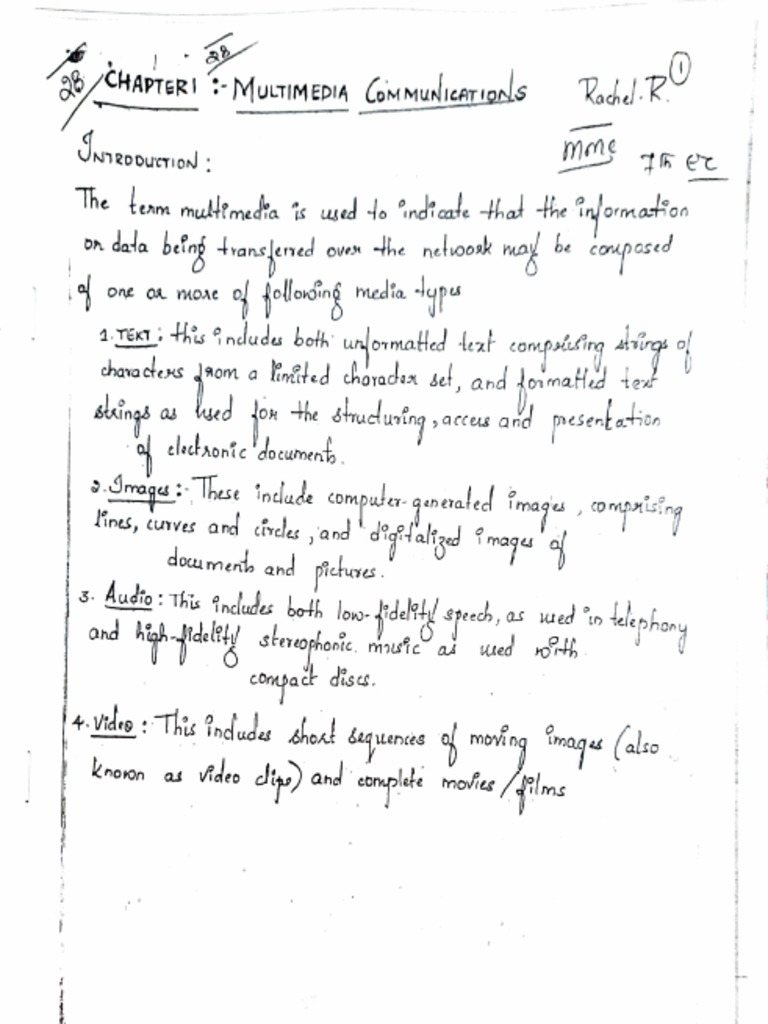 28
28 CHAPTER 1 :- MULTIMEDIA COMMUNICATIONS Rachel.R. 1
mmc 7th ec
INTRODUCTION :
The term multimedia is used to indicate that the information
or data being transferred over the network may be composed
of one or more of following media types
1. TEXT : this includes both unformatted text comprising strings of
characters from a limited character set, and formatted text
strings as used for the structuring, access and presentation
of electronic documents.
2. Images :- These include computer-generated images, comprising
lines, curves and circles, and digitalized images of
documents and pictures.
3. Audio : This includes both low-fidelity speech, as used in telephony
and high-fidelity stereophonic music as used with
compact discs.
4. Video : This includes short sequences of moving images (also
known as video clips) and complete movies/films